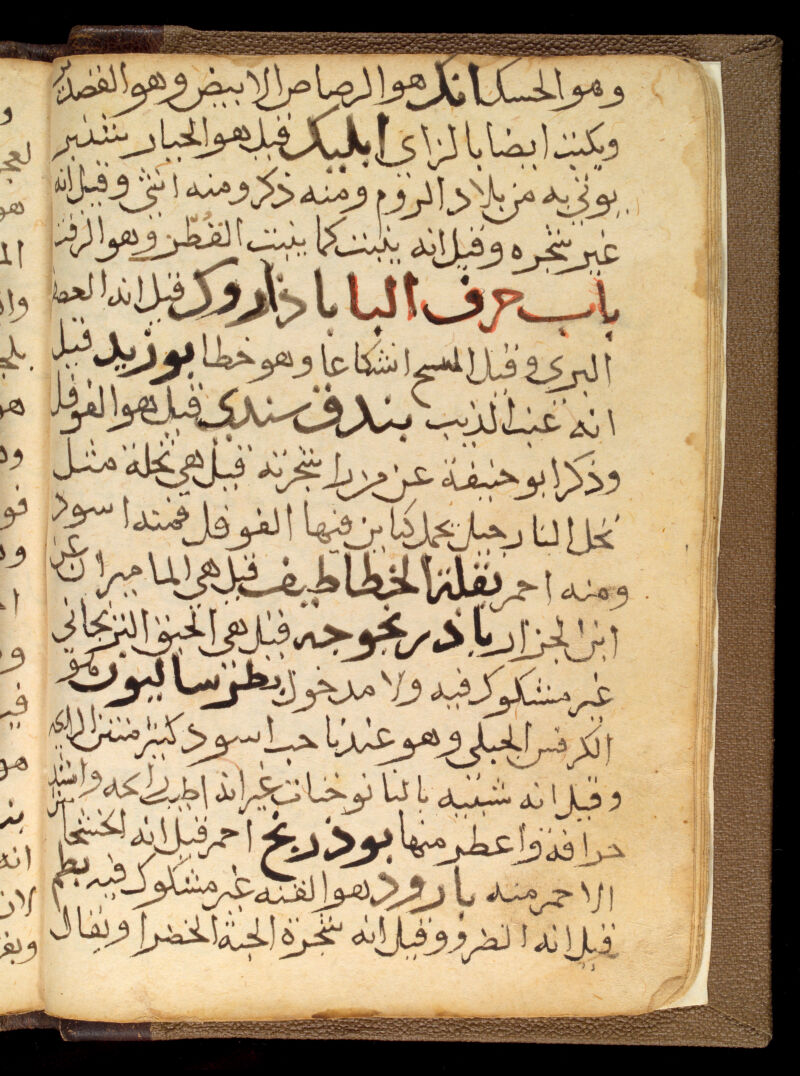 وهو الحسك انك هو الرصاص الابيض وهو القصدير
ويكتب ايضا بالزاي ابليك قيل هو الجبار
يوتي به من بلاد الروم ومنه ذكر ومنه انثى وقيل انه
غير شجره وقيل انه ينبت كما ينبت القطن وهو الزفت
باب حرف البا باداروك قيل انه
البري وقيل المسح اشكاعا وهو خطا بوزيد قيل
انه عنب الذيب بندق سندي قيل هو الفوفل
وذكر ابو حنيفة عن شجرته قيل هي نخلة مثل
نخل النارجيل يحمل كبايس فيها الفوفل فمنه اسود
ومنه احمر بقلة الخطاطيف قيل هي الماميران عن
ابن الجزار بادرنجوجه قيل هي الحبق الترنجاني
غير مشكوك فيه ولا مدخول بطرساليون هو
الكرفس الجبلي وهو عندنا حب اسود كبير منتن الرايحه
وقيل انه شبيه بالنانوخات غير انه اطيب رايحه واشد
حرافة واعطر منها بوذرنج احمر قيل انه الخشخاش
الاحمر منه بارود هو القنه غير مشكوك فيه بطم
قيل انه الضرو وقيل انه شجرة الحبة الخضرا ويقال